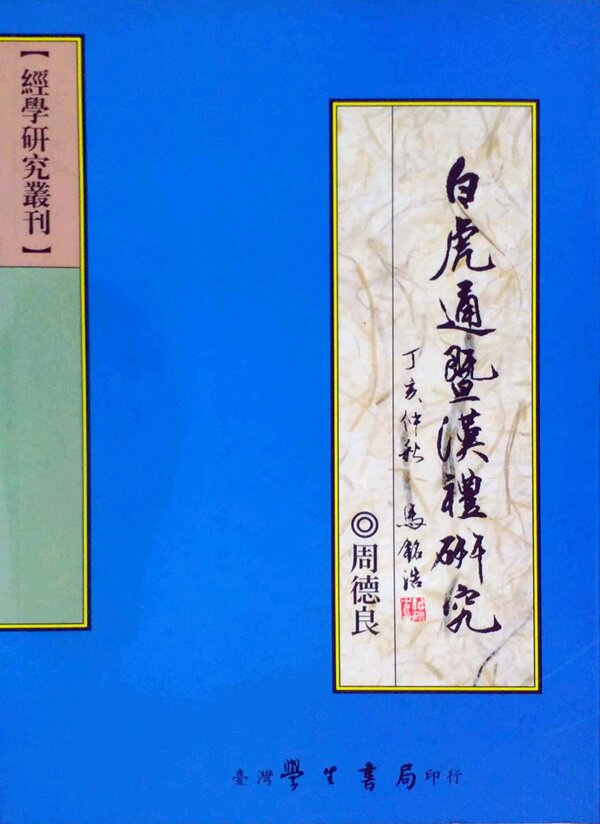 【經學研究叢刊】
白虎通暨漢禮研究
丁亥仲秋 馬銘浩
◎周德良
臺灣學生書局印行